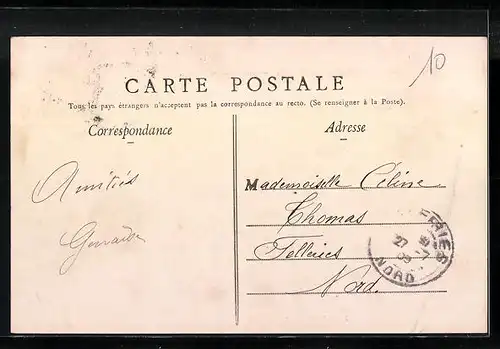 10
CARTE POSTALE
Tous les pays étrangers n'acceptent pas la correspondance au recto. (Se renseigner à la Poste).
Correspondance
Adresse
Amitiés
Mademoiselle Céline
Thomas
Felleries
Nord.
NORD